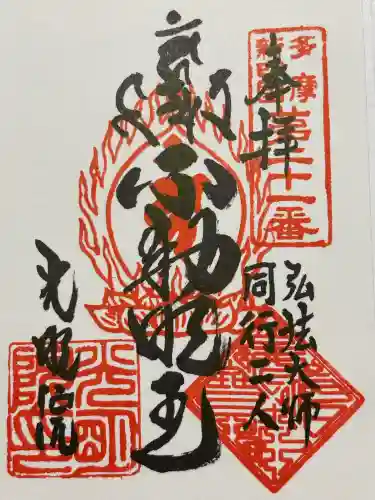 奉拝
多摩
新四国
第三十一番
不動明王
弘法大師
同行二人
光明院